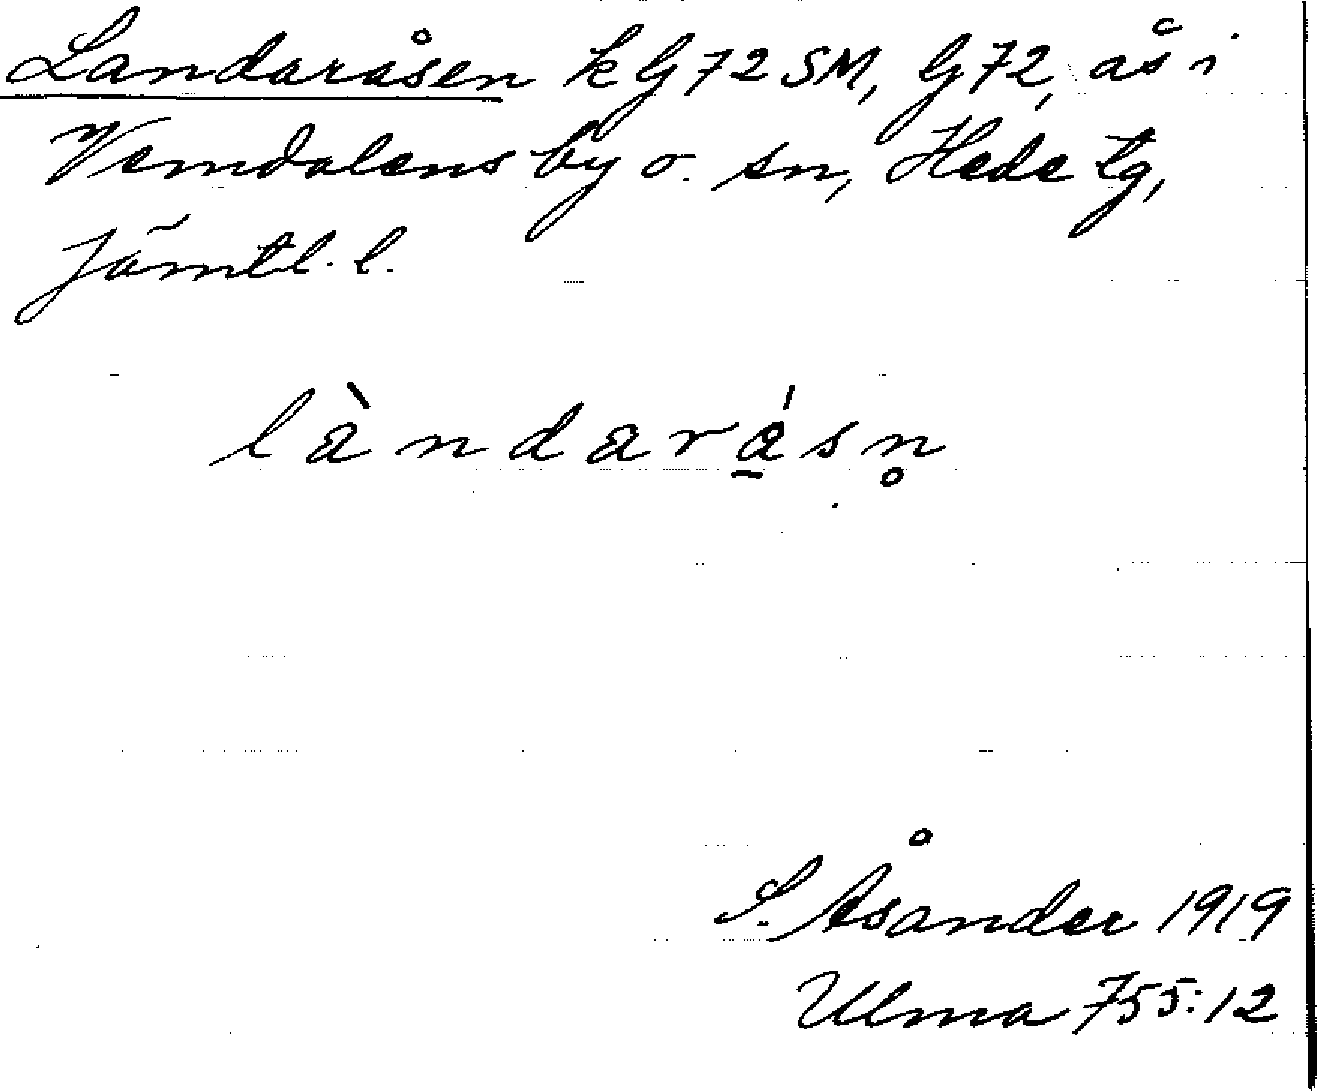 Landaråsen k G 72 SM, G 72, ås i
Vemdalens by o. sn, Hede tg,
Jämtl. l.
làndará̱sn̥
S. Åsander 1919
Ulma 755:12